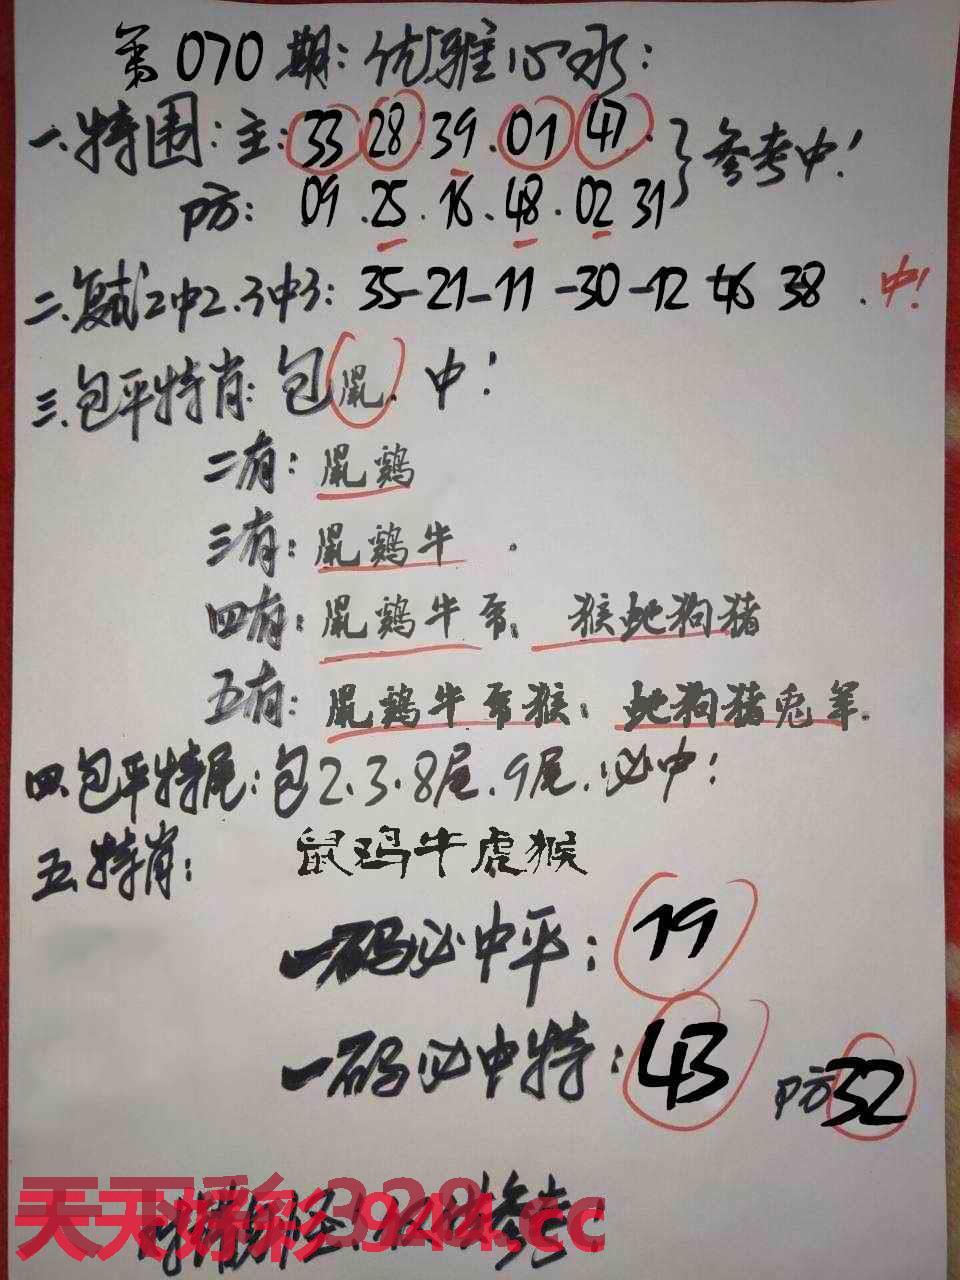 第070期：优雅心水：
一.特围：主：33 28 39.01 47.
参考中！
防：09.25.16.48.02 31
二.复式2中2.3中3：35-21-11-30-12 46 38.中！
三.包平特肖：包鼠.中！
二有：鼠鸡
三有：鼠鸡牛.
四有：鼠鸡牛虎；猴蛇狗猪
五有：鼠鸡牛虎猴；蛇狗猪兔羊.
四.包平特尾：包2.3.8尾.9尾.必中：
五.特肖：鼠鸡牛虎猴
一码必中平：19
一码必中特：43 防32
天天好彩
944.cc
参考